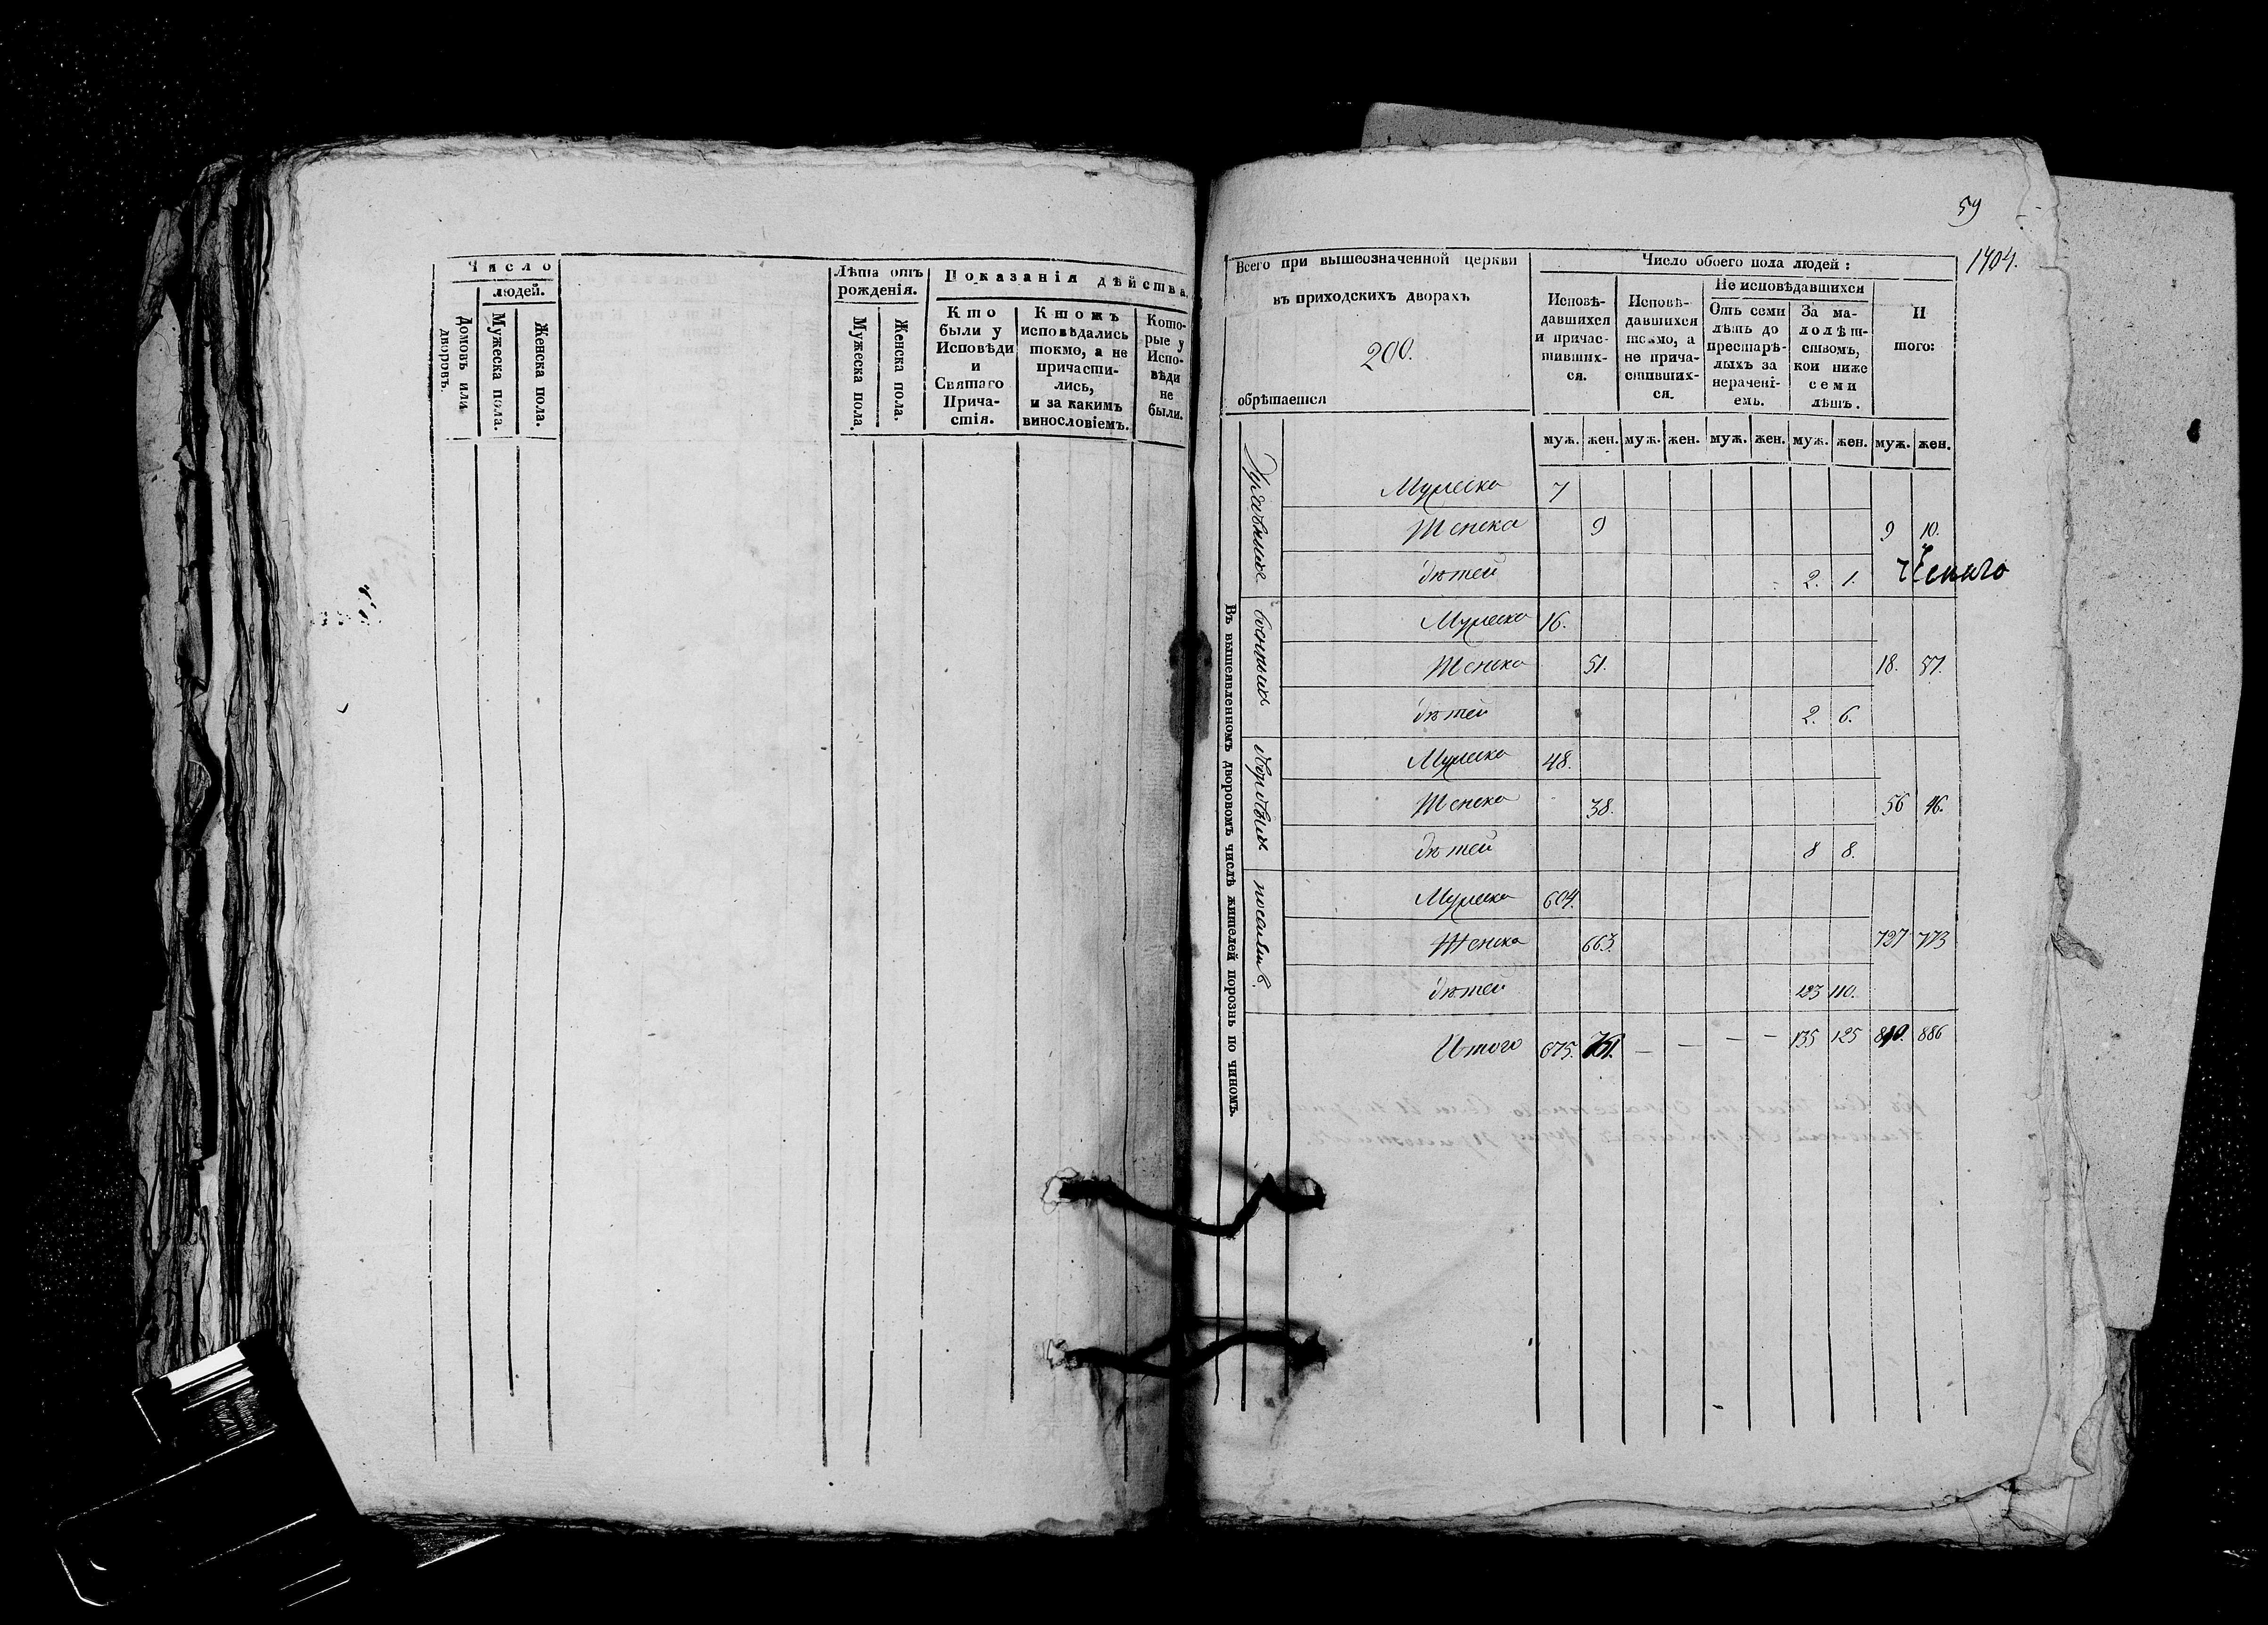 Число
людей.
Домовъ или дворовъ.
Мужеска пола.
Женска пола.
Лѣта отъ рожденія.
Мужеска пола.
Женска пола.
Показанія дѣйства.
Кто
были у
Исповѣди
и
Святаго
Прича-
стія.
Ктожъ
исповѣдались
токмо, а не
причасти-
лись,
и за какимъ
винословіемъ.
Кото-
рые у
Испо-
вѣди
не
были.
59
1404.
Всего при вышеозначенной церкви
въ приходскихъ дворахъ
200.
обрѣтается
Число обоего пола людей:
Исповѣ-
давшихся
и причас-
тивших-
ся.
Исповѣ-
давшихся
токмо, а
не прича-
стивших-
ся.
Не исповѣдавшихся
Отъ семи
лѣтъ до
престарѣ-
лыхъ за
нерачені-
емъ.
За ма-
лолѣт-
ствомъ,
кои ниже
семи
лѣтъ.
И
того:
муж. жен. муж. жен. муж. жен. муж. жен. муж. жен.
Въ вышеявленномъ дворовомъ числѣ жителей порознь по чиномъ.
Мужеска 7
Женска 9 9 10.
дѣтей 2. 1.
военныхъ
Мужеска 16.
Женска 51. 18. 57.
дѣтей 2. 6.
дворовыхъ
Мужеска 48.
Женска 38. 56 46.
дѣтей 8 8.
поселянъ
Мужеска 604.
Женска 663. 727 773
дѣтей 123 110.
Итого 675. 761. — — — — 135 125 810. 886